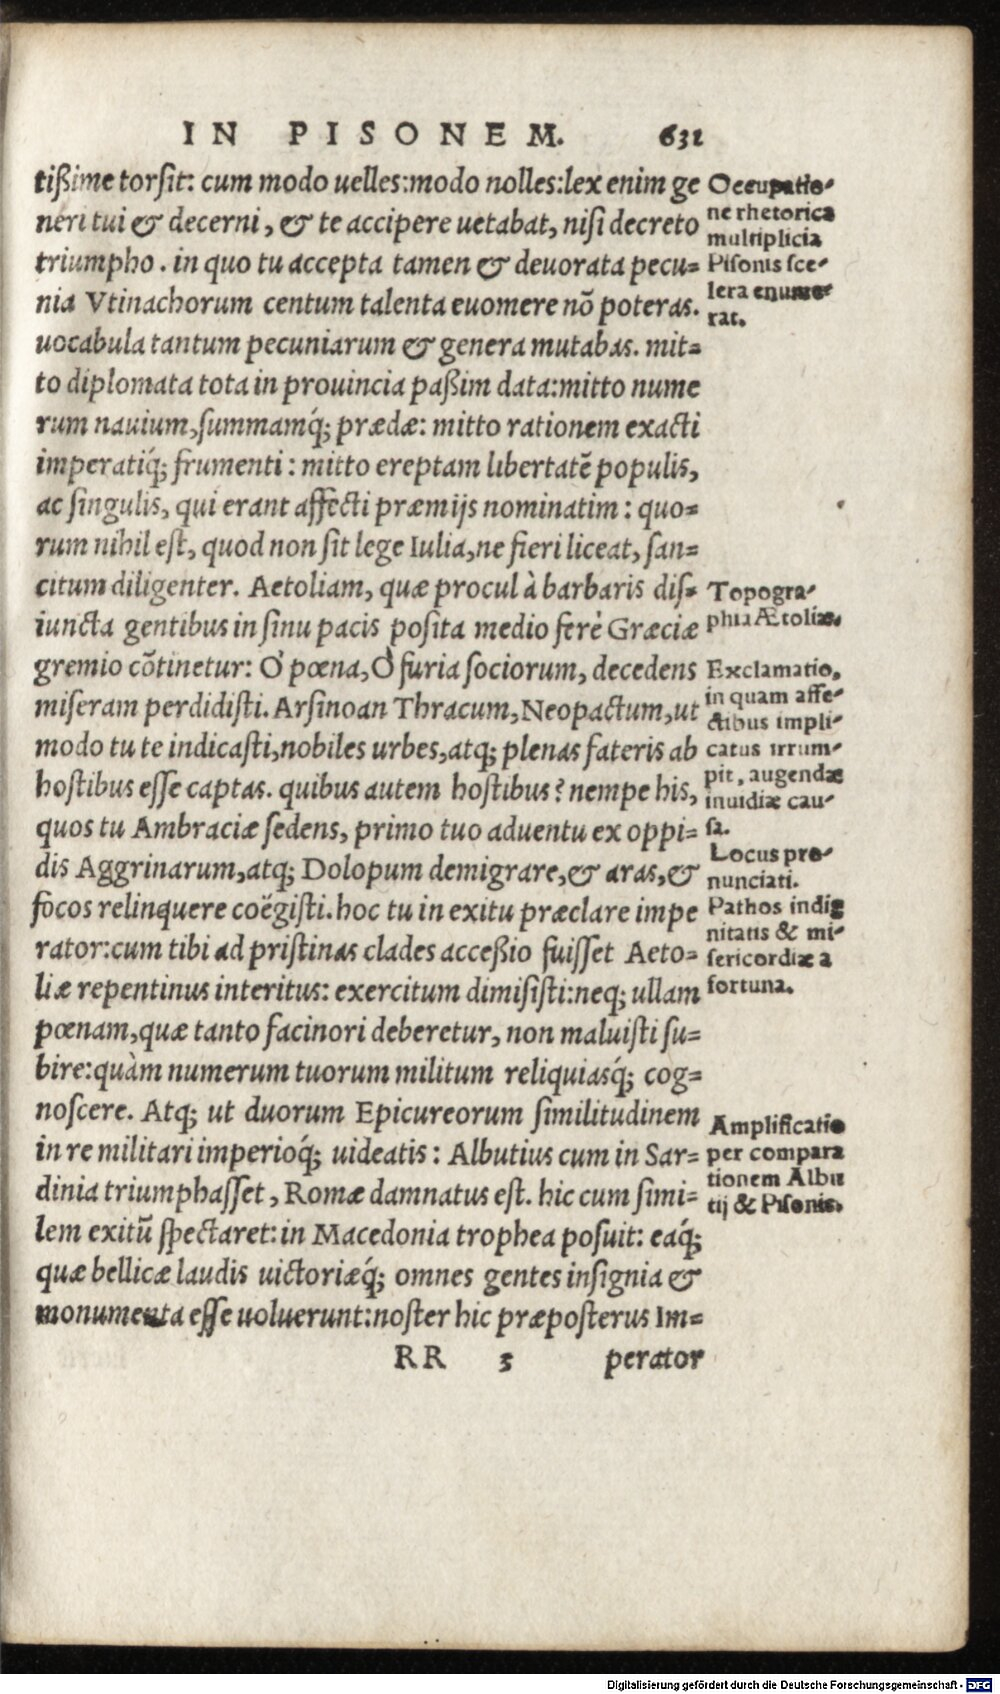 IN PISONEM. 631
tißime torsit: cum modo uelles:modo nolles:lex enim ge
neri tui & decerni, & te accipere uetabat, nisi decreto
triumpho. in quo tu accepta tamen & deuorata pecu=
nia Vtinachorum centum talenta euomere nõ poteras.
uocabula tantum pecuniarum & genera mutabas. mit=
to diplomata tota in prouincia paßim data:mitto nume
rum nauium,summamq́; prædæ: mitto rationem exacti
imperatiq́; frumenti: mitto ereptam libertatẽ populis,
ac singulis, qui erant affecti præmijs nominatim: quo=
rum nihil est, quod non sit lege Iulia,ne fieri liceat, san=
citum diligenter. Aetoliam, quæ procul à barbaris dis=
iuncta gentibus in sinu pacis posita medio ferè Græciæ
gremio cõtinetur: O' pœna,O' furia sociorum, decedens
miseram perdidisti. Arsinoan Thracum,Neopactum,ut
modo tu te indicasti,nobiles urbes,atq; plenas fateris ab
hostibus esse captas. quibus autem hostibus? nempe his,
quos tu Ambraciæ sedens, primo tuo aduentu ex oppi=
dis Aggrinarum,atq; Dolopum demigrare,& aras,&
focos relinquere coëgisti. hoc tu in exitu præclare impe
rator:cum tibi ad pristinas clades acceßio fuisset Aeto=
liæ repentinus interitus: exercitum dimisisti:neq; ullam
pœnam,quæ tanto facinori deberetur, non maluisti su=
bire:quàm numerum tuorum militum reliquiasq́; cog=
noscere. Atq; ut duorum Epicureorum similitudinem
in re militari imperioq́; uideatis: Albutius cum in Sar=
dinia triumphasset, Romæ damnatus est. hic cum simi=
lem exitũ spectaret: in Macedonia trophea posuit: eaq́;
quæ bellicæ laudis uictoriæq́; omnes gentes insignia &
monumenta esse uoluerunt:noster hic præposterus Im=
RR 3 perator
Occupatio-
ne rhetorica
multiplicia
Pisonis sce-
lera enume-
rat.
Topogra-
phia Ætoliæ.
Exclamatio,
in quam affe-
ctibus impli-
catus irrum-
pit, augendæ
inuidiæ cau-
sa.
Locus pro-
nunciati.
Pathos indig
nitatis & mi-
sericordiæ a
fortuna.
Amplificatio
per compara
tionem Albu
tij & Pisonis.
Digitalisierung gefördert durch die Deutsche Forschungsgemeinschaft - DFG